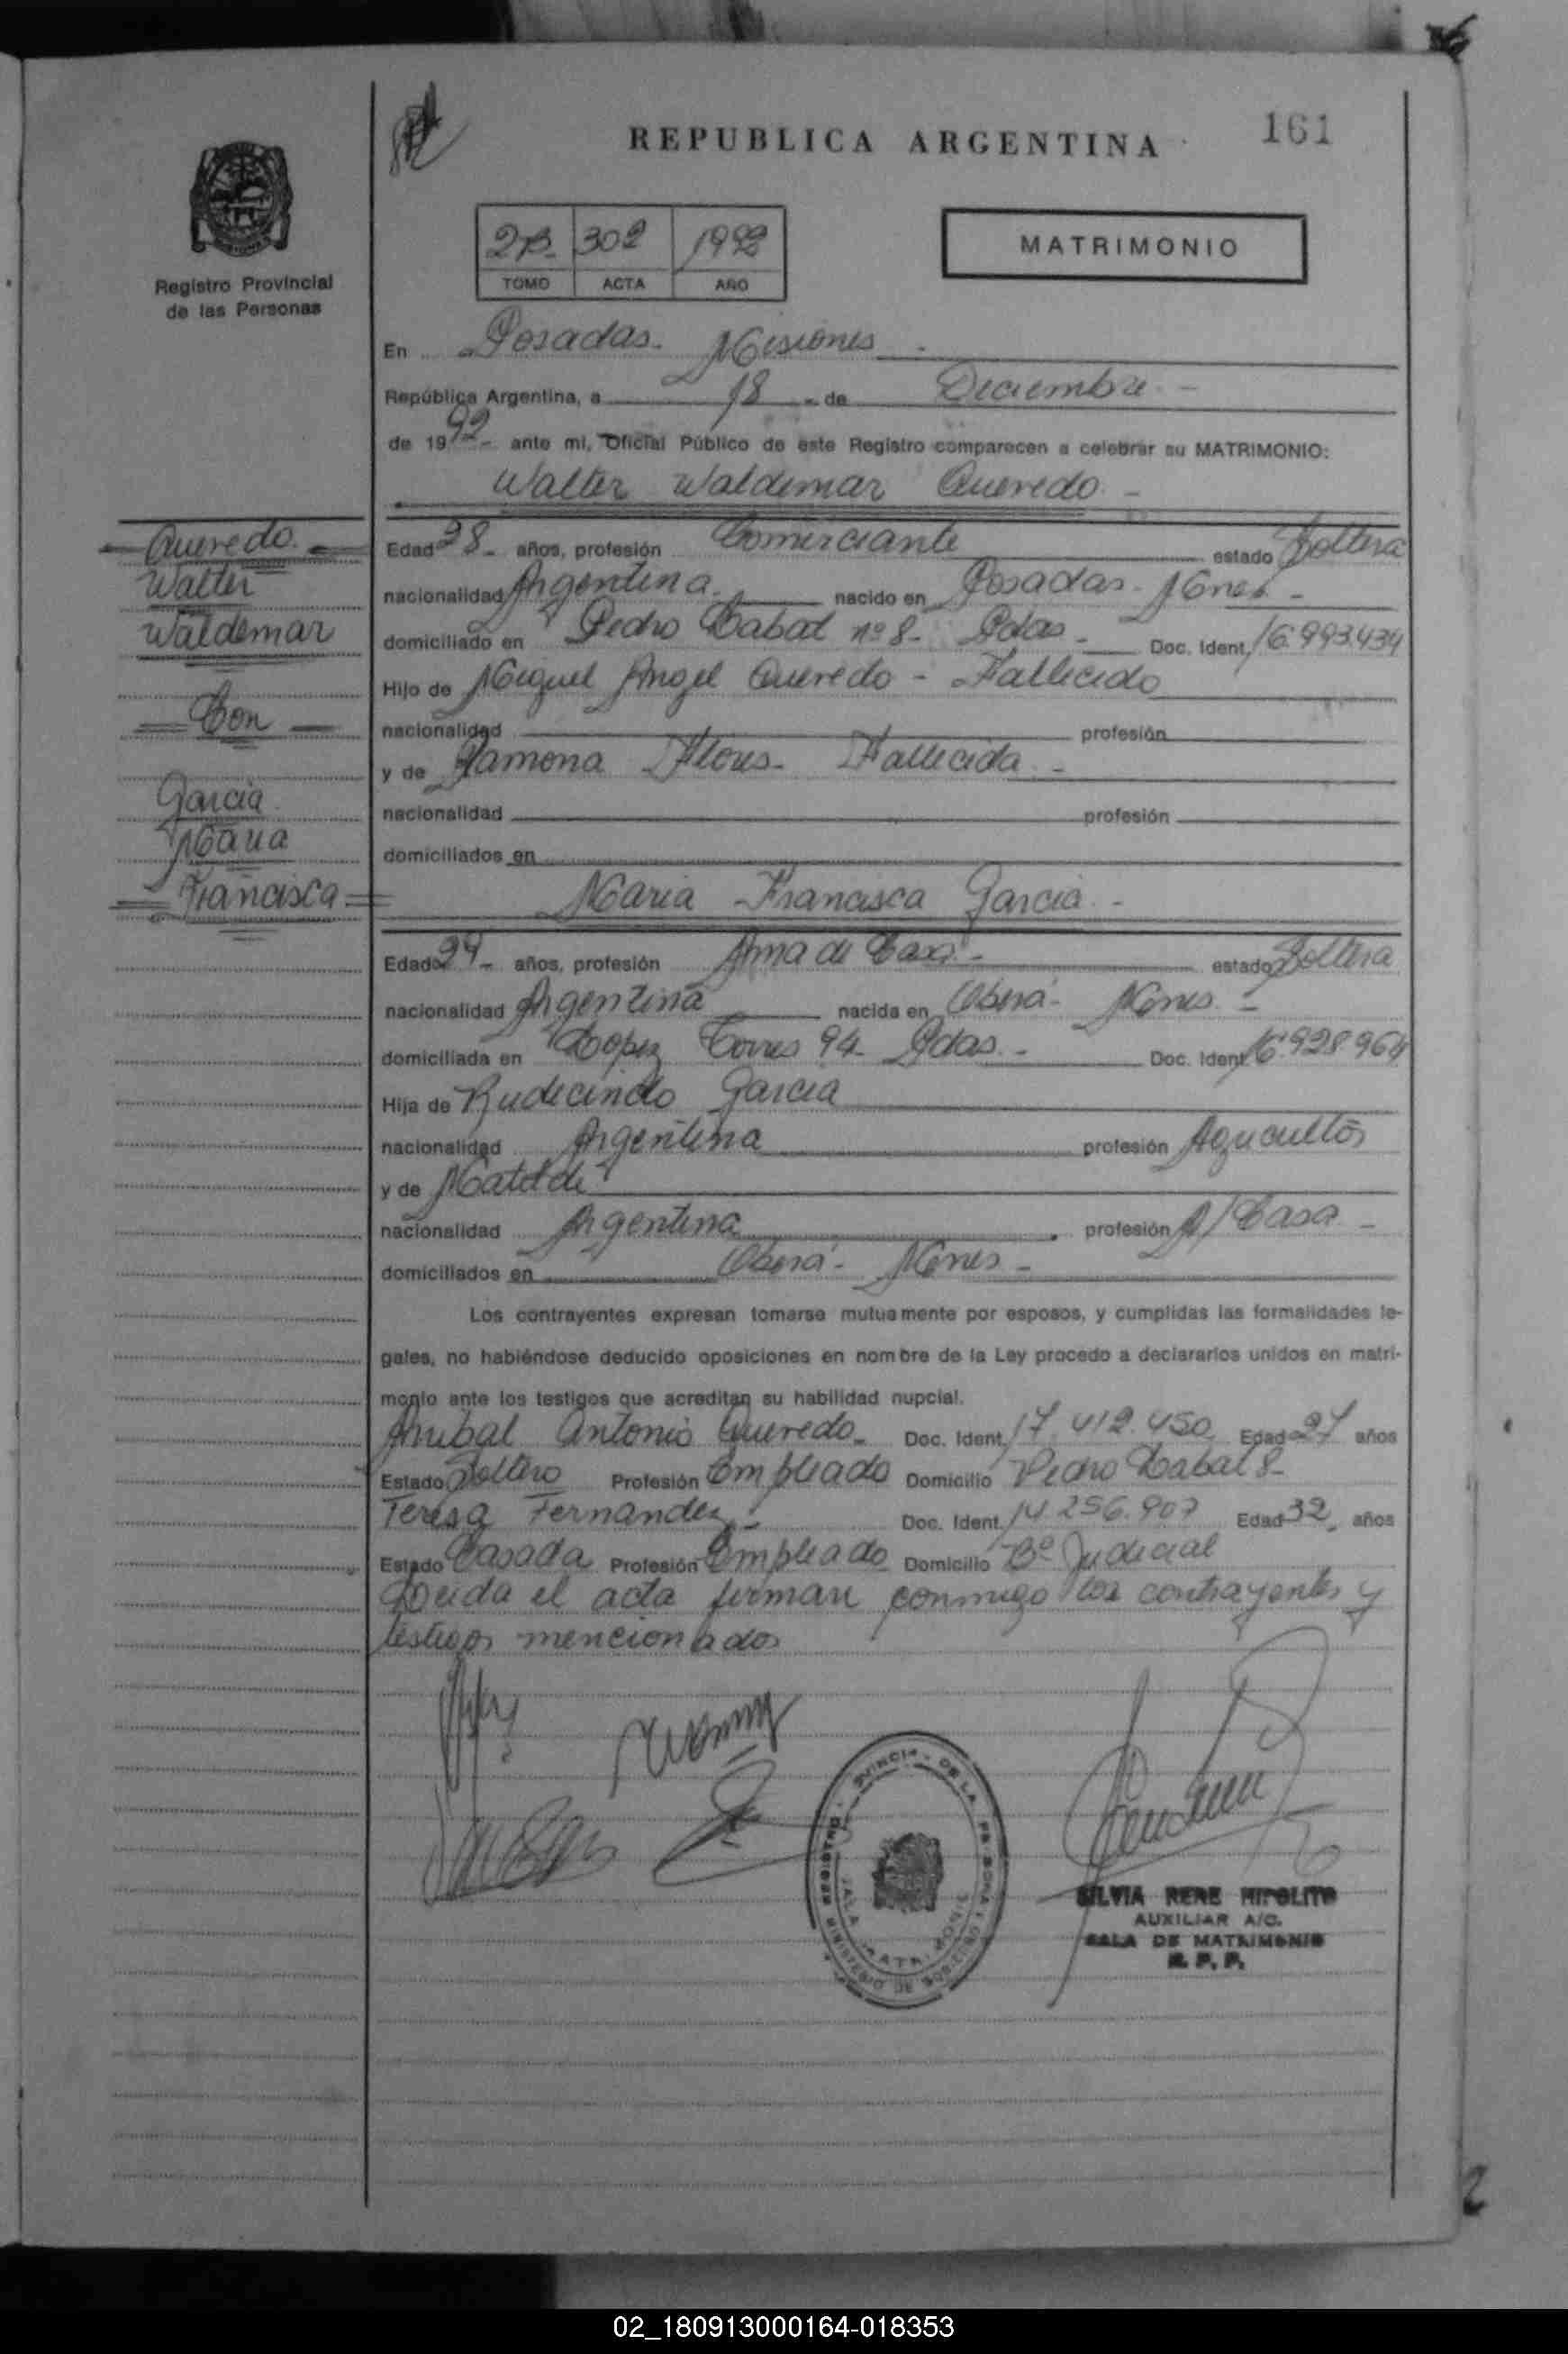 REPUBLICA ARGENTINA
161
Registro Provincial
de las Personas
2B 302 1992
TOMO ACTA AÑO
MATRIMONIO
En Posadas - Misiones
República Argentina, a 18 - de Diciembre -
de 1992 - ante mi, Oficial Público de este Registro comparecen a celebrar su MATRIMONIO:
Walter Waldemar Quevedo. -
Quevedo.
Walter
Waldemar
Con
Garcia
Maria
Francisca
Edad 28 - años, profesión Comerciante estado Soltera
nacionalidad Argentina. nacido en Posadas - Mnes -
domiciliado en Pedro Cabal nº 8 - Pdas - Doc. Ident. 16.993.434
Hijo de Miguel Angel Quevedo - Fallecido
nacionalidad profesión
y de Ramona Flores - Fallecida. -
nacionalidad profesión
domiciliados en
Maria Francisca Garcia. -
Edad 24 - años, profesión Ama de Casa - estado Soltera
nacionalidad Argentina nacida en Oberá - Mnes. -
domiciliada en Lopez Torres 94 - Pdas. - Doc. Ident. 16.928.964
Hija de Rudecindo Garcia
nacionalidad Argentina profesión Agricultor
y de Matilde
nacionalidad Argentina profesión A/ Casa -
domiciliados en Oberá - Mnes -
Los contrayentes expresan tomarse mutuamente por esposos, y cumplidas las formalidades le-
gales, no habiéndose deducido oposiciones en nombre de la Ley procedo a declararlos unidos en matri-
monio ante los testigos que acreditan su habilidad nupcial.
Anibal Antonio Quevedo - Doc. Ident. 17.412.450 Edad 27 años
Estado Soltero Profesión Empleado Domicilio Pedro Cabal 8 -
Teresa Fernandez - Doc. Ident. 14.256.907 Edad 32 años
Estado Casada Profesión Empleado Domicilio Bº Judicial
Leida el acta firman conmigo los contrayentes y
testigos mencionados
SILVIA RENE HIPOLITO
AUXILIAR A/C.
SALA DE MATRIMONIO
R. P. P.
02_180913000164-018353